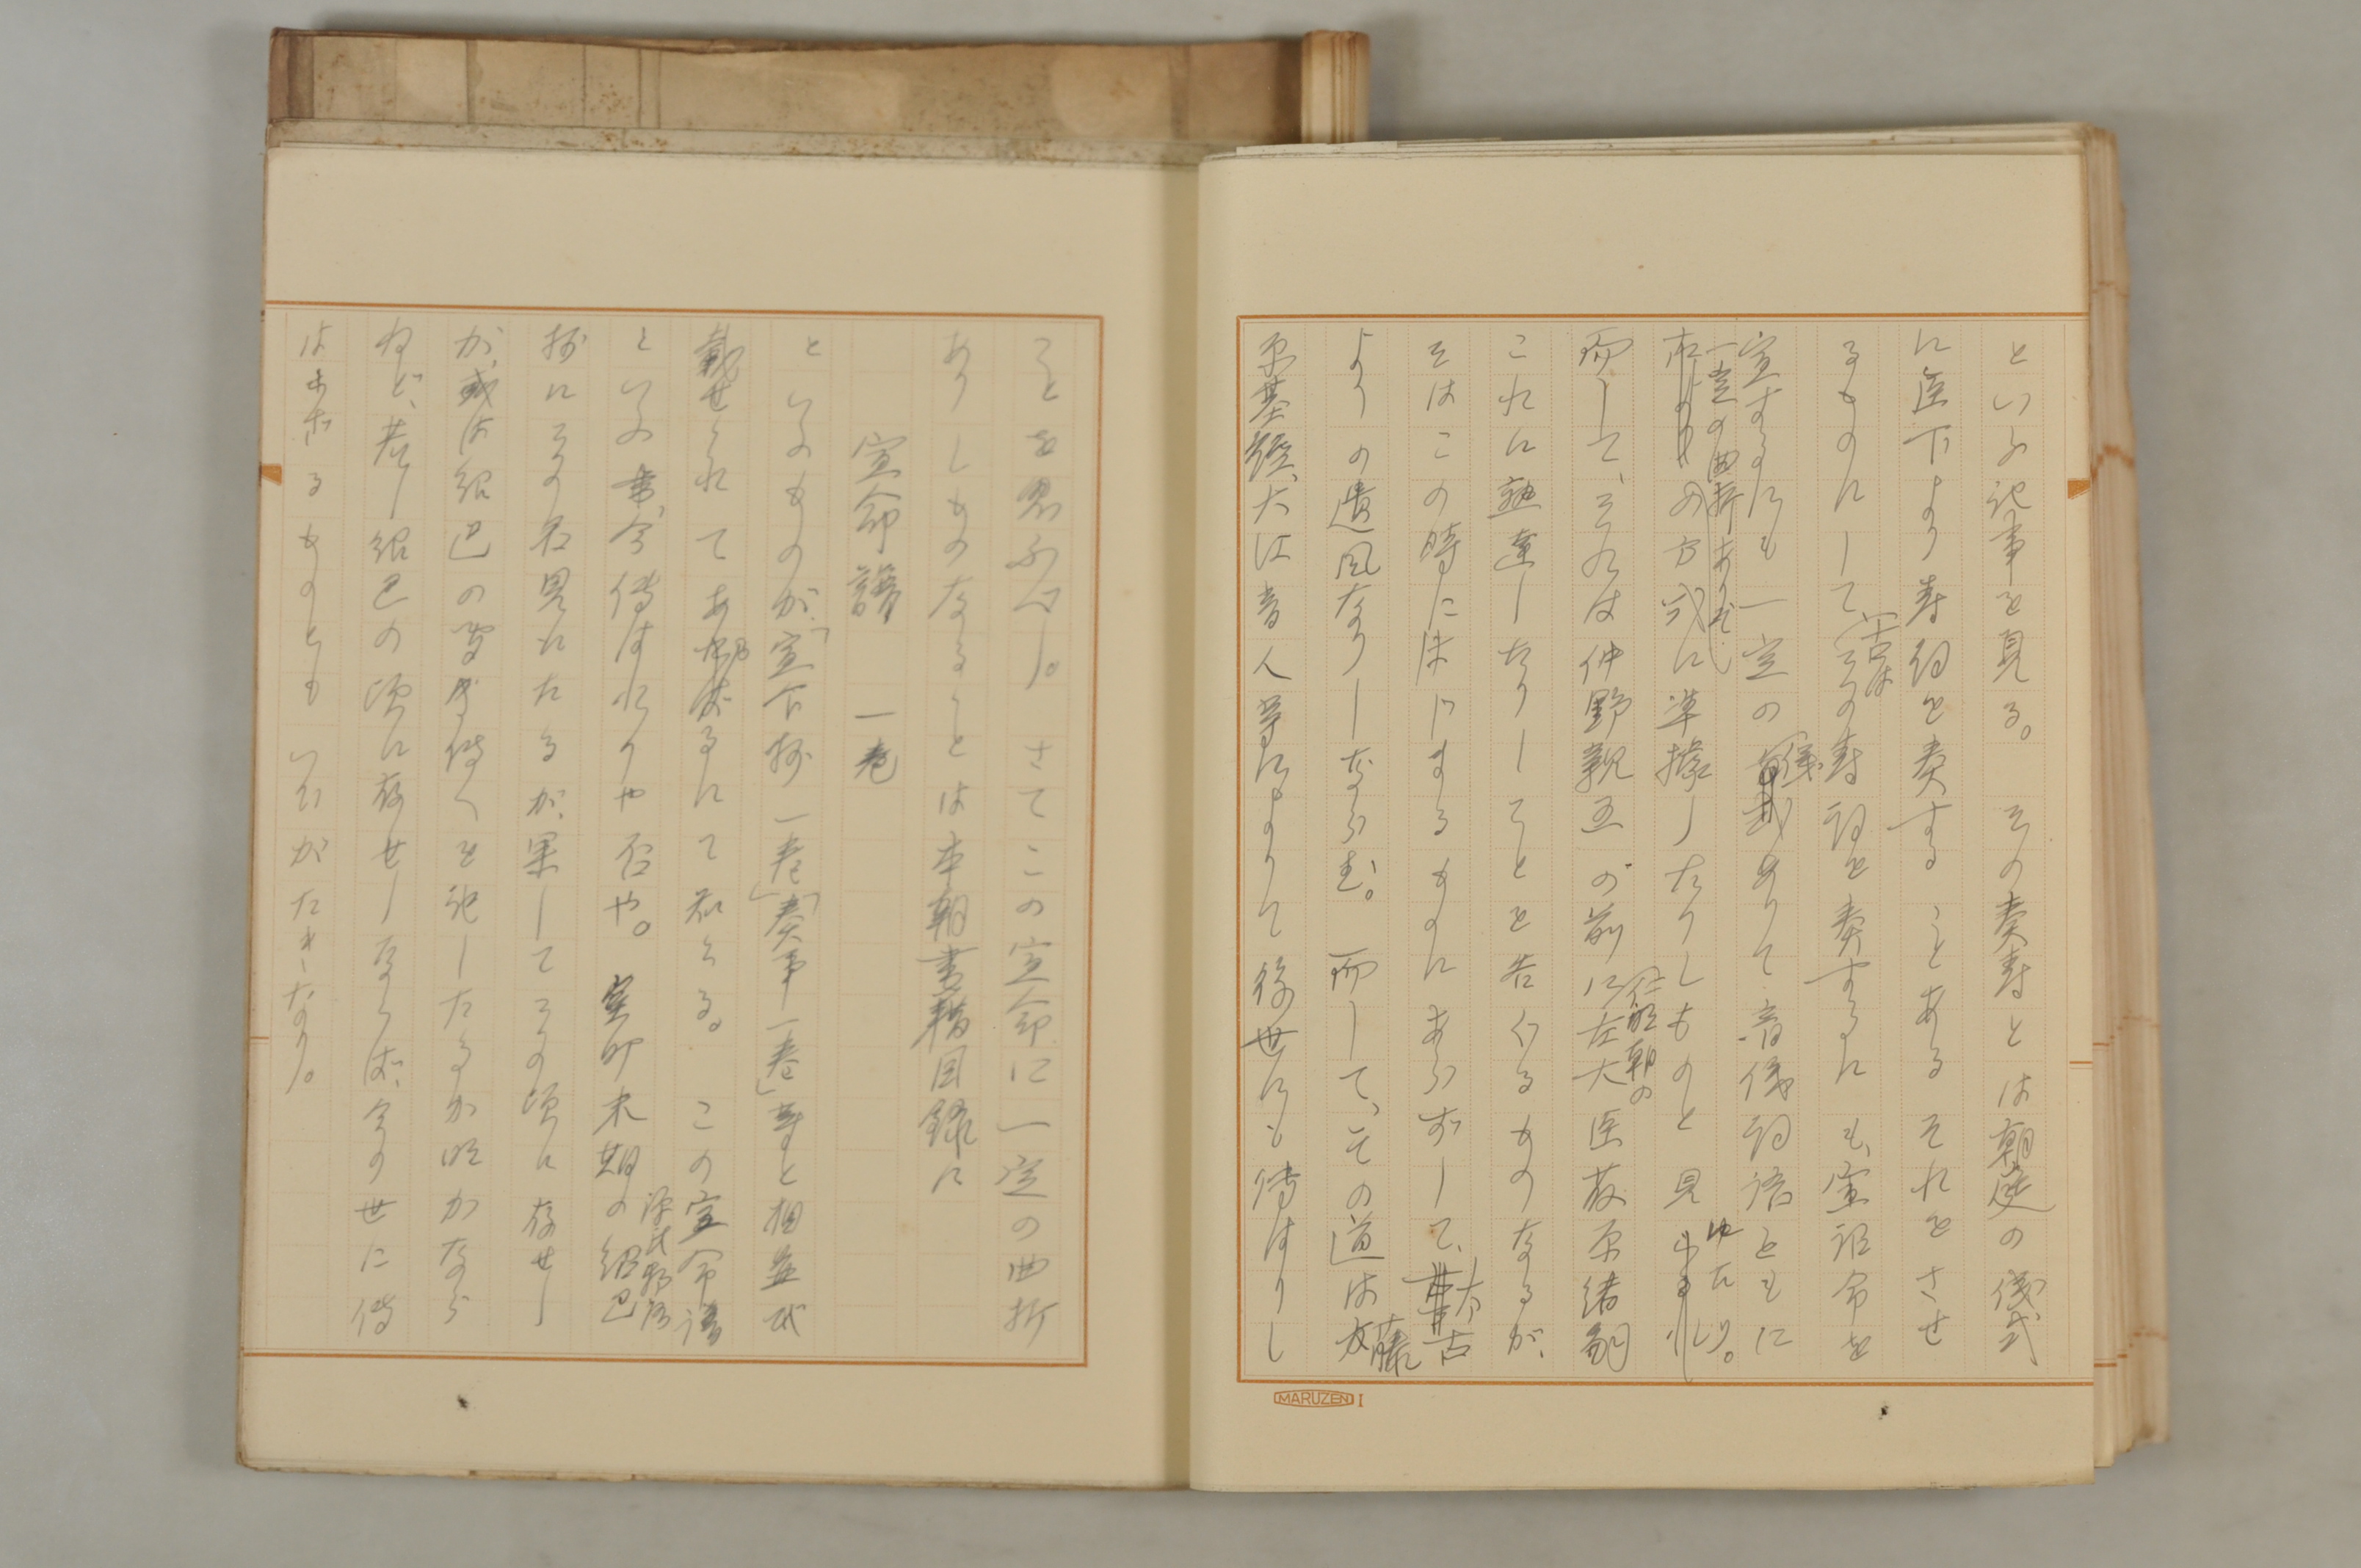 といふ記事を見る。その奏寿とは朝廷の儀式
に臣下より寿詞を奏することあるそれをさせ
るものにして(古はその寿詞を奏するにも、宣詔命を
宣するにも一定の儀ありて、音儀詞語ともに
一定の曲折ありて
の方式に準據したりしものと見ゆたり。
而して、それは仲野親王の前に(仁明朝の左大臣藤原緒嗣
これに熟達したりしことを告ぐるものなるが、
そはこの時にはじまるものにあらずして、太古
よりの遺風なりしならむ。而して、その道は藤
原基經、大江音人等によりて後世にも傳はりし
MARUZEN I
ことを思ふべし。さてこの宣命に一定の曲折
ありしものなることは本朝書籍目録に
宣命譜 一巻
といふものが、「宣下抄一巻」「奏事一巻」等と相並べ
載せられてあるにて知らる。この宣命譜
といふ書、今傳はれりや否や。室町末期の紹巴
源氏物語
抄にその名見えたるが、果してその頃に存せし
か、或は紹巴の聞き傳へを記したるか明かなら
ねど、若し紹巴の頃に存せしならば、今の世に傳
はらざるものともいひがたきなり。